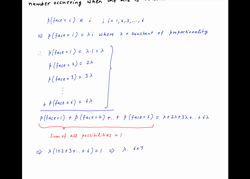 number occurring when
P(face = i) ∝ i ; i = 1, 2, 3, ..., 6
∴ P(face = i) = λ i where λ = constant of proportionality
∴ P(face = 1) = λ·1 = λ
P(face = 2) = 2λ
P(face = 3) = 3λ
⋮
+ P(face = 6) = 6λ
P(face=1) + P(face=2) + .. + P(face=6) = λ+2λ+3λ+...6λ
Sum of all possibilities = 1
⇒ λ(1+2+3+...+6) = 1 ⇒ λ. 6×7